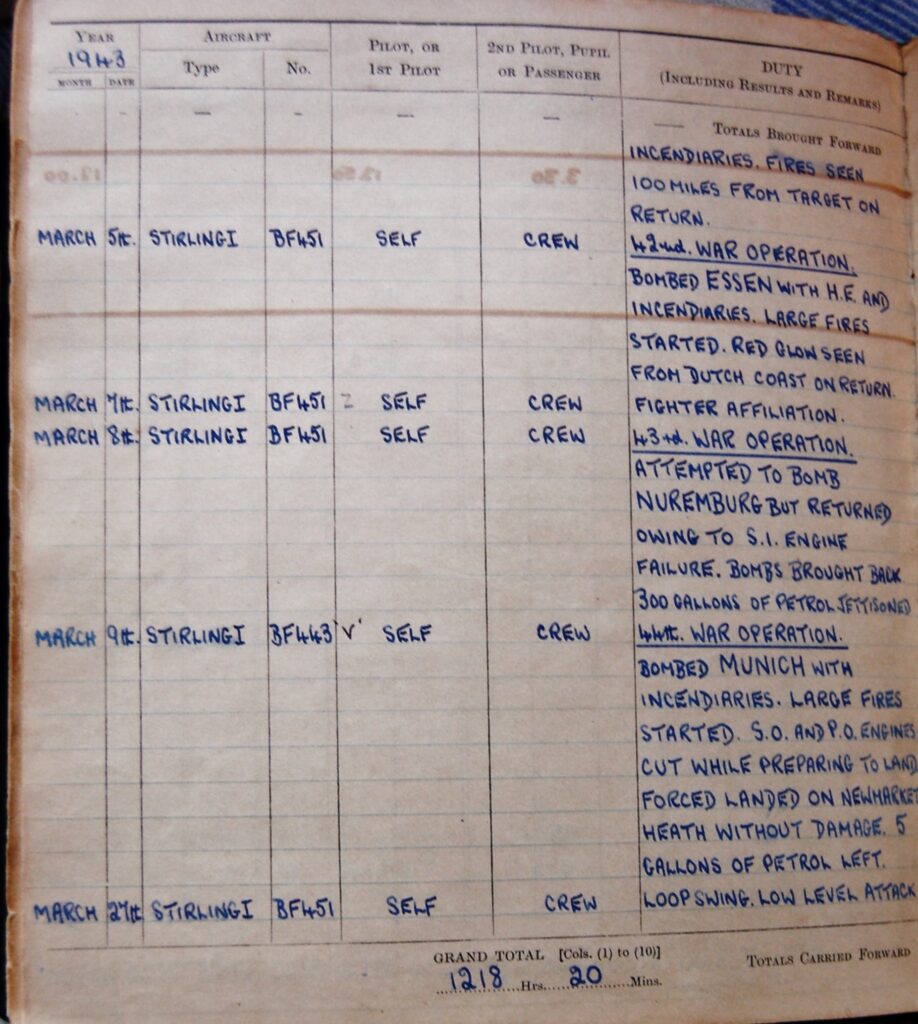 YEAR AIRCRAFT PILOT, OR 2ND PILOT, PUPIL DUTY
1943 Type No. 1ST PILOT OR PASSENGER (INCLUDING RESULTS AND REMARKS)
MONTH DATE
— - — — — TOTALS BROUGHT FORWARD
INCENDIARIES. FIRES SEEN
100 MILES FROM TARGET ON
RETURN.
MARCH 5th. STIRLING I BF451 SELF CREW 42nd. WAR OPERATION.
BOMBED ESSEN WITH H.E. AND
INCENDIARIES. LARGE FIRES
STARTED. RED GLOW SEEN
FROM DUTCH COAST ON RETURN.
MARCH 7th. STIRLING I BF451 SELF CREW FIGHTER AFFILIATION.
MARCH 8th. STIRLING I BF451 SELF CREW 43rd. WAR OPERATION.
ATTEMPTED TO BOMB
NUREMBURG BUT RETURNED
OWING TO S.I. ENGINE
FAILURE. BOMBS BROUGHT BACK
300 GALLONS OF PETROL JETTISONED
MARCH 9th. STIRLING I BF443 'V' SELF CREW 44th. WAR OPERATION.
BOMBED MUNICH WITH
INCENDIARIES. LARGE FIRES
STARTED. S.O. AND P.O. ENGINES
CUT WHILE PREPARING TO LAND
FORCED LANDED ON NEWMARKET
HEATH WITHOUT DAMAGE. 5
GALLONS OF PETROL LEFT.
MARCH 27th STIRLING I BF451 SELF CREW LOOP SWING. LOW LEVEL ATTACK
GRAND TOTAL [Cols. (1) to (10)] TOTALS CARRIED FORWARD
1218 Hrs. 20 Mins.